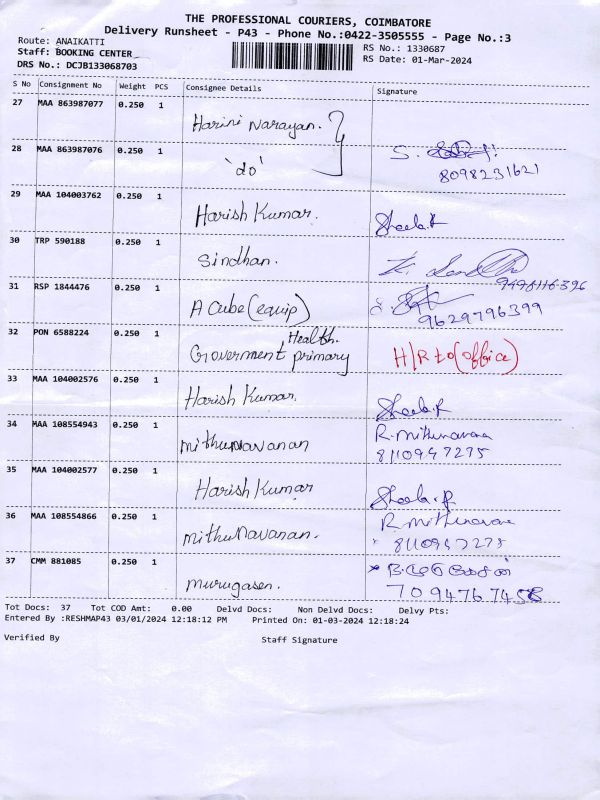 THE PROFESSIONAL COURIERS, COIMBATORE
Delivery Runsheet - P43 - Phone No.:0422-3505555 - Page No.:3
Route: ANAIKATTI
RS No.: 1330687
Staff: BOOKING CENTER
RS Date: 01-Mar-2024
DRS No.: DCJB133068703
S No Consignment No Weight PCS Consignee Details Signature
27 MAA 863987077 0.250 1
Harini Narayan.
28 MAA 863987076 0.250 1 S.
'do' 8098231621
29 MAA 104003762 0.250 1
Harish Kumar. Sheela.R
30 TRP 590188 0.250 1
Sindhan.
31 RSP 1844476 0.250 1 9498116396
A Cube (equip) 9629796399
32 PON 6588224 0.250 1 Health.
Goverment primary H/R to (office)
33 MAA 104002576 0.250 1
Harish Kumar. Sheela.R
34 MAA 108554943 0.250 1 R. Mithunavana
Mithunavanan 8110947275
35 MAA 104002577 0.250 1
Harish Kumar Sheela.R
36 MAA 108554866 0.250 1 R Mithunavana
Mithunavanan. 8110947275
37 CMM 881085 0.250 1
Murugasen. 7094767408
Tot Docs: 37 Tot COD Amt: 0.00 Delvd Docs: Non Delvd Docs: Delvy Pts:
Entered By :RESHMAP43 03/01/2024 12:18:12 PM Printed On: 01-03-2024 12:18:24
Verified By Staff Signature